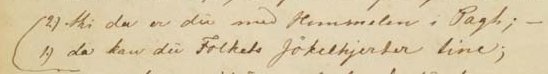 2) thi da er du med Himmelen i Pagt; —
1) da kan du Folkets Jökelhjerter tine;